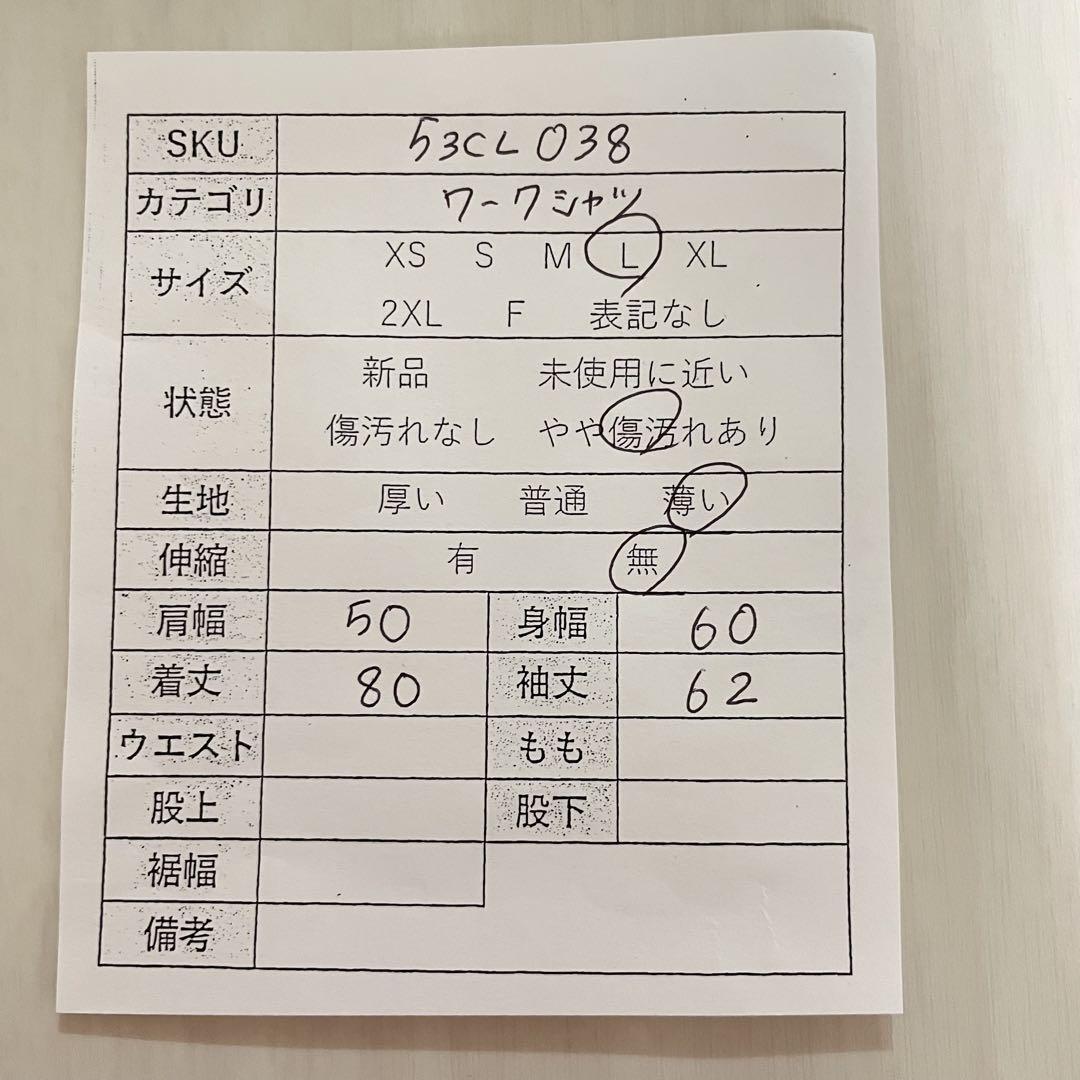 SKU 53CL038
カテゴリ ワークシャツ
サイズ XS S M L XL
2XL F 表記なし
状態 新品 未使用に近い
傷汚れなし やや傷汚れあり
生地 厚い 普通 薄い
伸縮 有 無
肩幅 50 身幅 60
着丈 80 袖丈 62
ウエスト もも
股上 股下
裾幅
備考